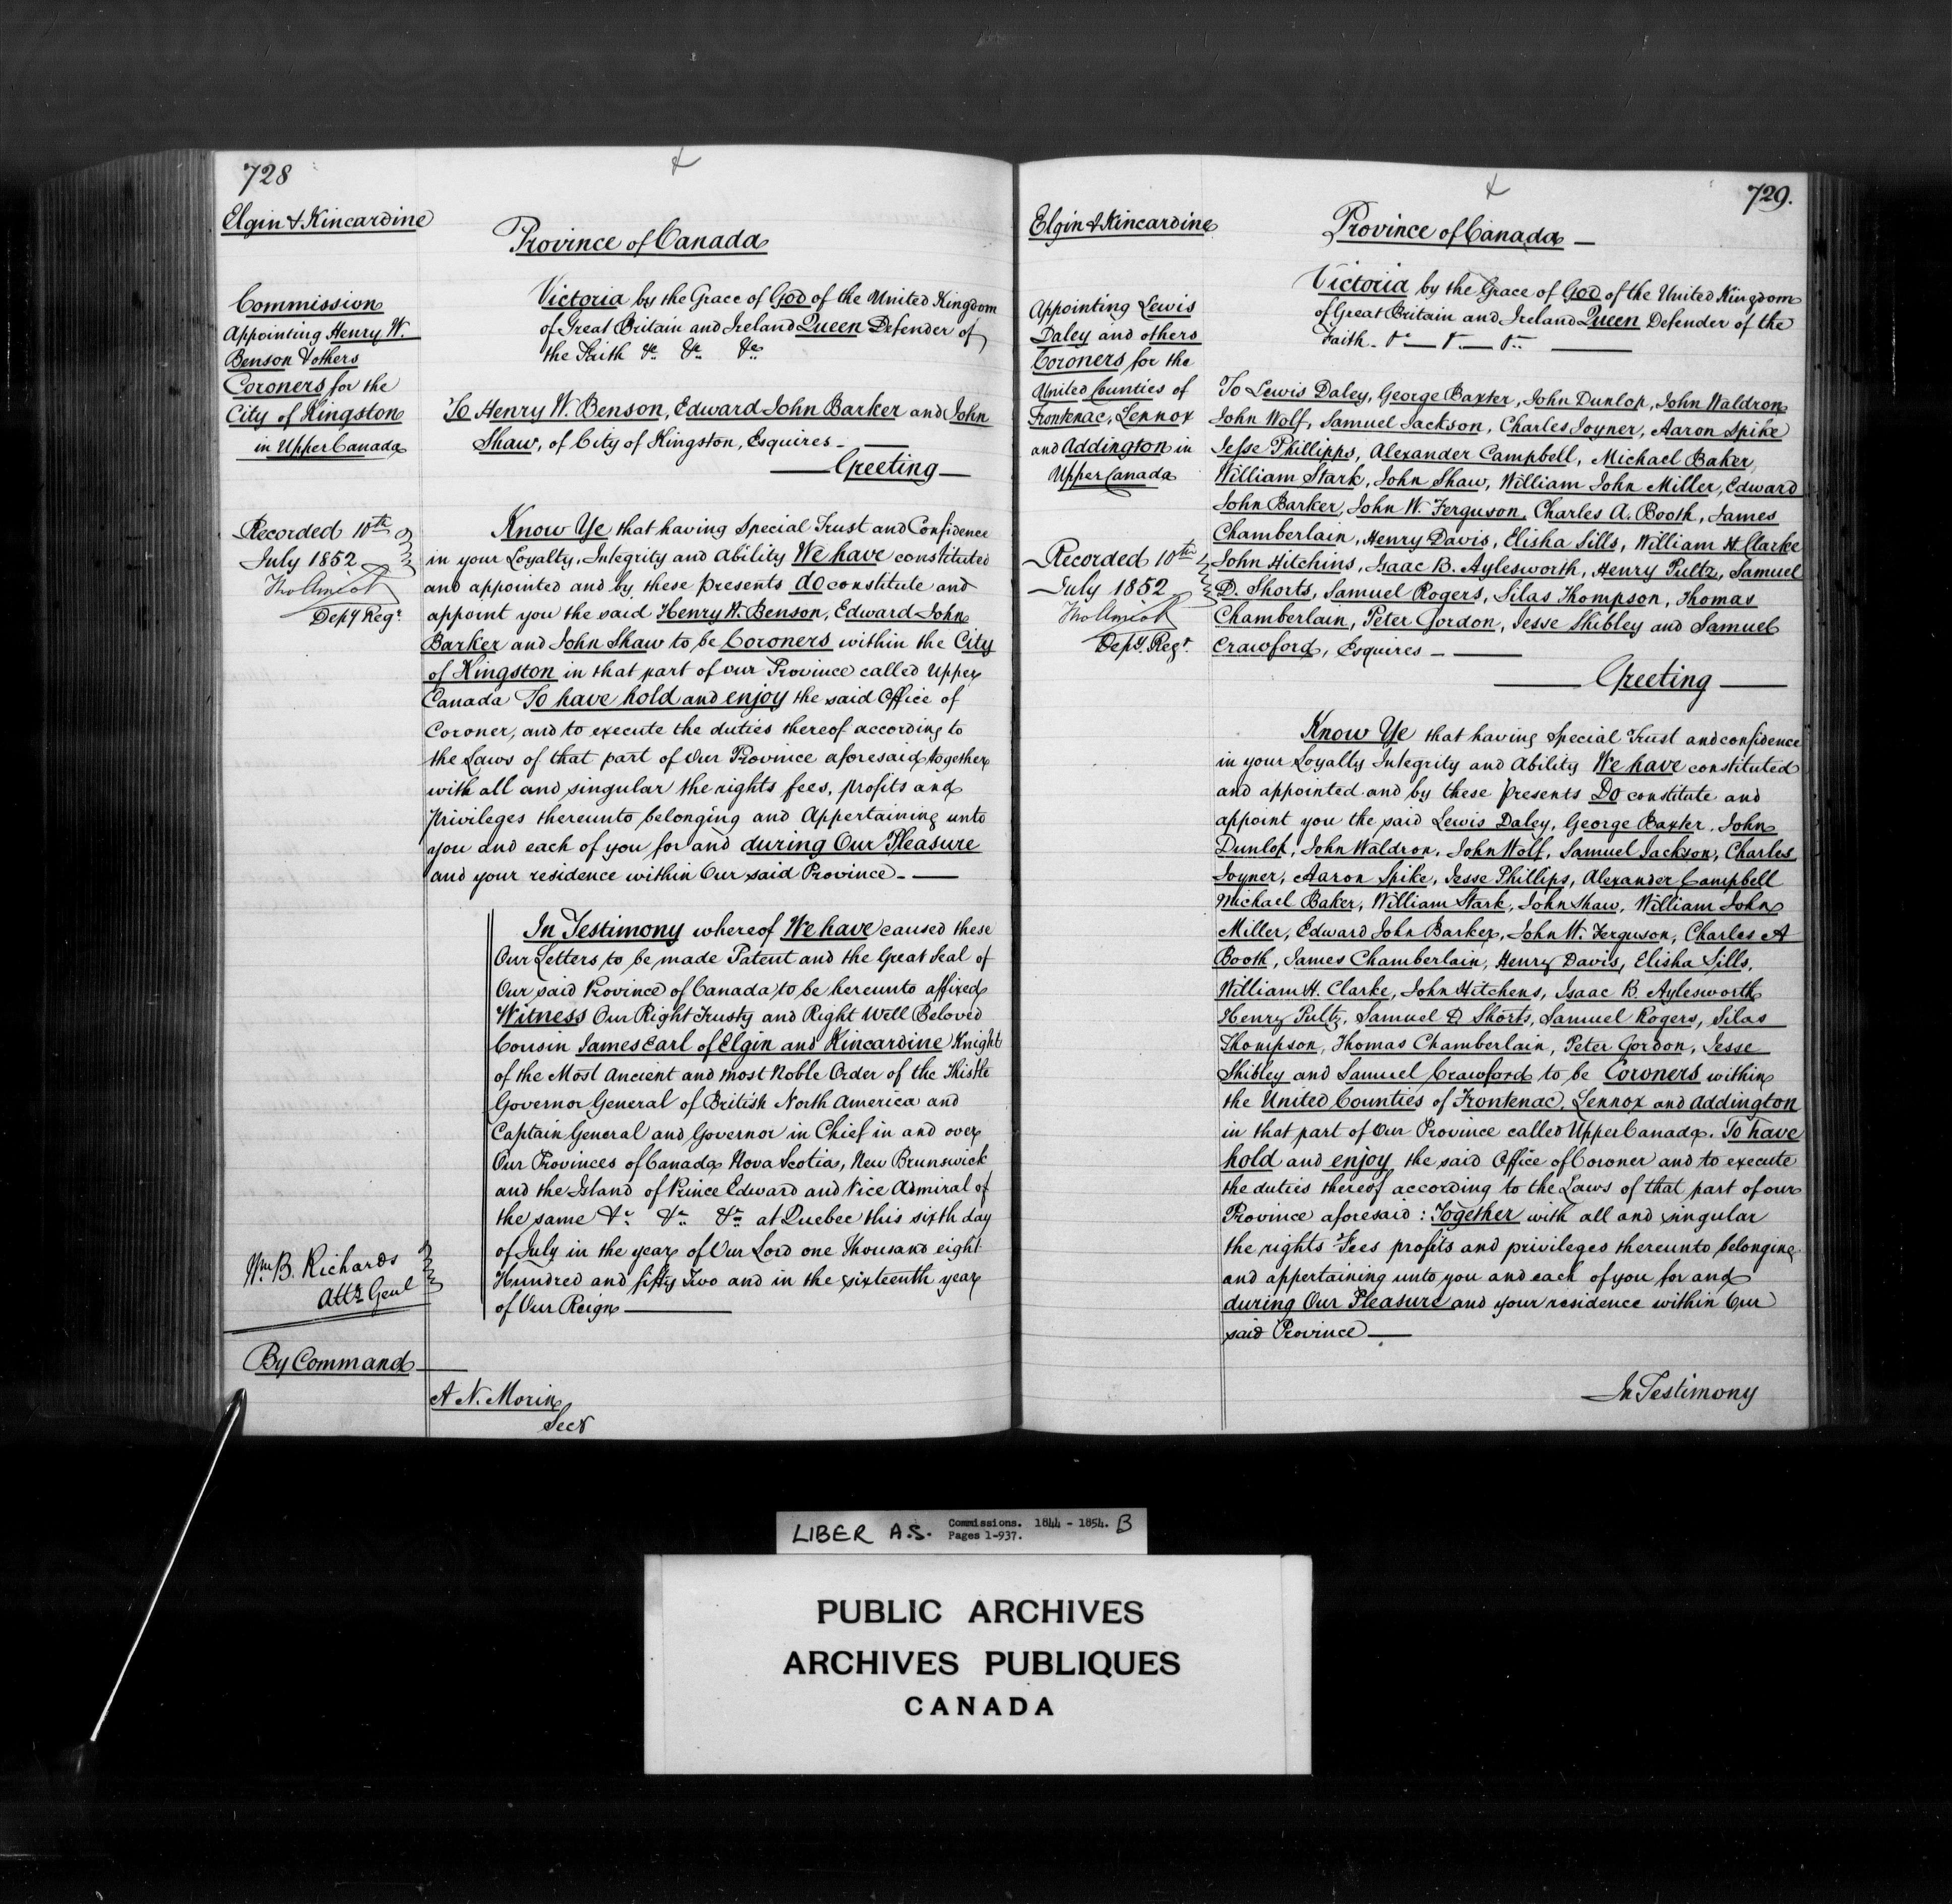 728
Elgin & Kincardine
Province of Canada
Commission
Appointing Henry W.
Benson & others
Coroners for the
City of Kingston
in Upper Canada
Victoria by the Grace of God of the United Kingdom
of Great Britain and Ireland Queen Defender of
the Faith &c. &c. &c.
To Henry W. Benson, Edward John Barker and John
Shaw, of City of Kingston, Esquires - —
— Greeting —
Recorded 10th
July 1852
Tho Amiot
Depy Regr
Know Ye that having special Trust and Confidence
in your Loyalty, Integrity and Ability We have constituted
and appointed and by these presents do constitute and
appoint you the said Henry W. Benson, Edward John
Barker and John Shaw to be Coroners within the City
of Kingston in that part of our Province called Upper
Canada To have hold and enjoy the said Office of
Coroner, and to execute the duties thereof according to
the Laws of that part of Our Province aforesaid, together
with all and singular the rights fees, profits and
Privileges thereunto belonging and Appertaining unto
you and each of you for and during Our Pleasure
and your residence within Our said Province - —
In Testimony whereof We have caused these
Our Letters to be made Patent and the Great Seal of
Our said Province of Canada to be hereunto affixed
Witness Our Right Trusty and Right Well Beloved
Cousin James Earl of Elgin and Kincardine Knight
of the Most Ancient and most Noble Order of the Thistle
Governor General of British North America and
Captain General and Governor in Chief in and over
Our Provinces of Canada Nova Scotia, New Brunswick
and the Island of Prince Edward and Vice Admiral of
the same &c. &c. &c. at Quebec this sixth day
of July in the year of Our Lord one Thousand eight
Hundred and fifty Two and in the sixteenth year
of Our Reign —
Wm. B. Richards
Atty Genl
By Command —
A N. Morin
Secy
729.
Elgin & Kincardine
Province of Canada —
Appointing Lewis
Daley and others
Coroners for the
United Counties of
Frontenac, Lennox
and Addington in
Upper Canada
Victoria by the Grace of God of the United Kingdom
of Great Britain and Ireland Queen Defender of the
Faith - &c — &c — &c —
To Lewis Daley, George Baxter, John Dunlop, John Waldron
John Wolf, Samuel Jackson, Charles Joyner, Aaron Spike
Jesse Phillipps, Alexander Campbell, Michael Baker,
William Stark, John Shaw, William John Miller, Edward
John Barker, John W. Ferguson, Charles A. Booth, James
Chamberlain, Henry Davis, Elisha Sills, William H. Clarke
John Hitchins, Isaac B. Aylesworth, Henry Pultz, Samuel
D. Shorts, Samuel Rogers, Silas Thompson, Thomas
Chamberlain, Peter Gordon, Jesse Shibley and Samuel
Crawford, Esquires - —
— Greeting —
Recorded 10th
July 1852
Tho Amiot
Depy. Regr.
Know Ye that having special Trust and confidence
in your Loyalty Integrity and Ability We have constituted
and appointed and by these presents Do constitute and
appoint you the said Lewis Daley, George Baxter, John
Dunlop, John Waldron, John Wolf, Samuel Jackson, Charles
Joyner, Aaron Spike, Jesse Phillips, Alexander Campbell
Michael Baker, William Stark, John Shaw, William John
Miller, Edward John Barker, John W. Ferguson, Charles A
Booth, James Chamberlain, Henry Davis, Elisha Sills,
William H. Clarke, John Hitchens, Isaac B. Aylesworth
Henry Pultz, Samuel D Shorts, Samuel Rogers, Silas
Thompson, Thomas Chamberlain, Peter Gordon, Jesse
Shibley and Samuel Crawford to be Coroners within
the United Counties of Frontenac, Lennox and Addington
in that part of Our Province called Upper Canada. To have
hold and enjoy the said Office of Coroner and to execute
the duties thereof according to the Laws of that part of our
Province aforesaid: Together with all and singular
the rights Fees profits and privileges thereunto belonging
and appertaining unto you and each of you for and
during Our Pleasure and your residence within Our
said Province —
In Testimony
LIBER A.S. Commissions. 1844 - 1854. B
Pages 1-937.
PUBLIC ARCHIVES
ARCHIVES PUBLIQUES
CANADA